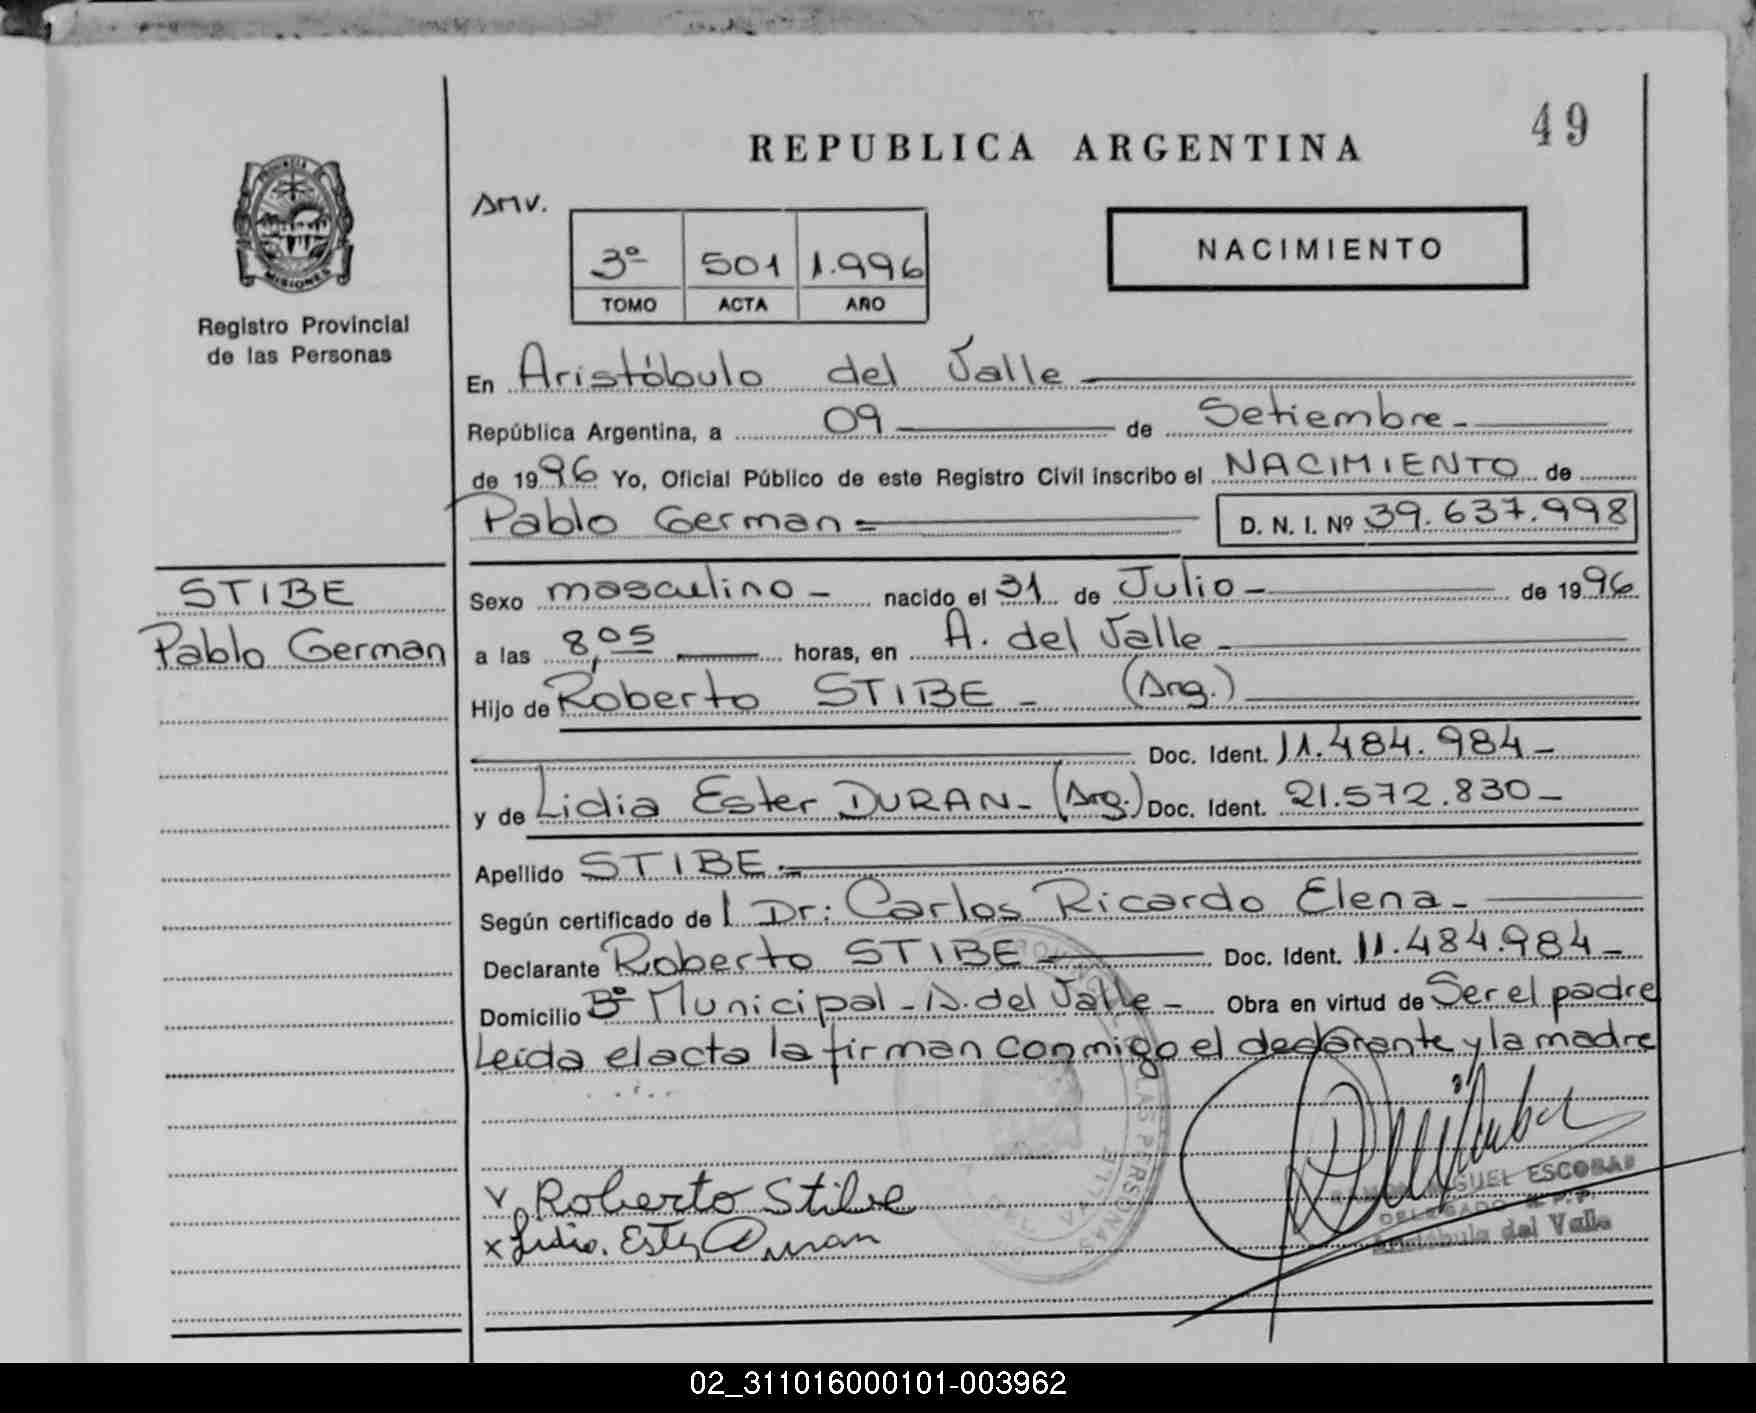 49
REPUBLICA ARGENTINA
PROVINCIA
MISIONES
Registro Provincial
de las Personas
NACIMIENTO
3º 501 1.996
TOMO ACTA AÑO
En Aristóbulo del Valle
República Argentina, a 09 de Setiembre
de 1996 Yo, Oficial Público de este Registro Civil inscribo el NACIMIENTO de
Pablo German D. N. I. Nº 39.637.998
STIBE
Pablo German
Sexo masculino nacido el 31 de Julio de 1996
a las 8,05 horas, en A. del Valle
Hijo de Roberto STIBE (Arg.)
Doc. Ident. 11.484.984
y de Lidia Ester DURAN (Arg.) Doc. Ident. 21.572.830
Apellido STIBE
Según certificado de l Dr: Carlos Ricardo Elena
Declarante Roberto STIBE Doc. Ident. 11.484.984
Domicilio Bº Municipal - A. del Valle Obra en virtud de Ser el padre
Leída el acta la firman conmigo el declarante y la madre
Roberto Stibe
x Lidia Ester Duran
MIGUEL ESCOBAR
DELEGADO R.P.P.
Aristóbulo del Valle
02_311016000101-003962